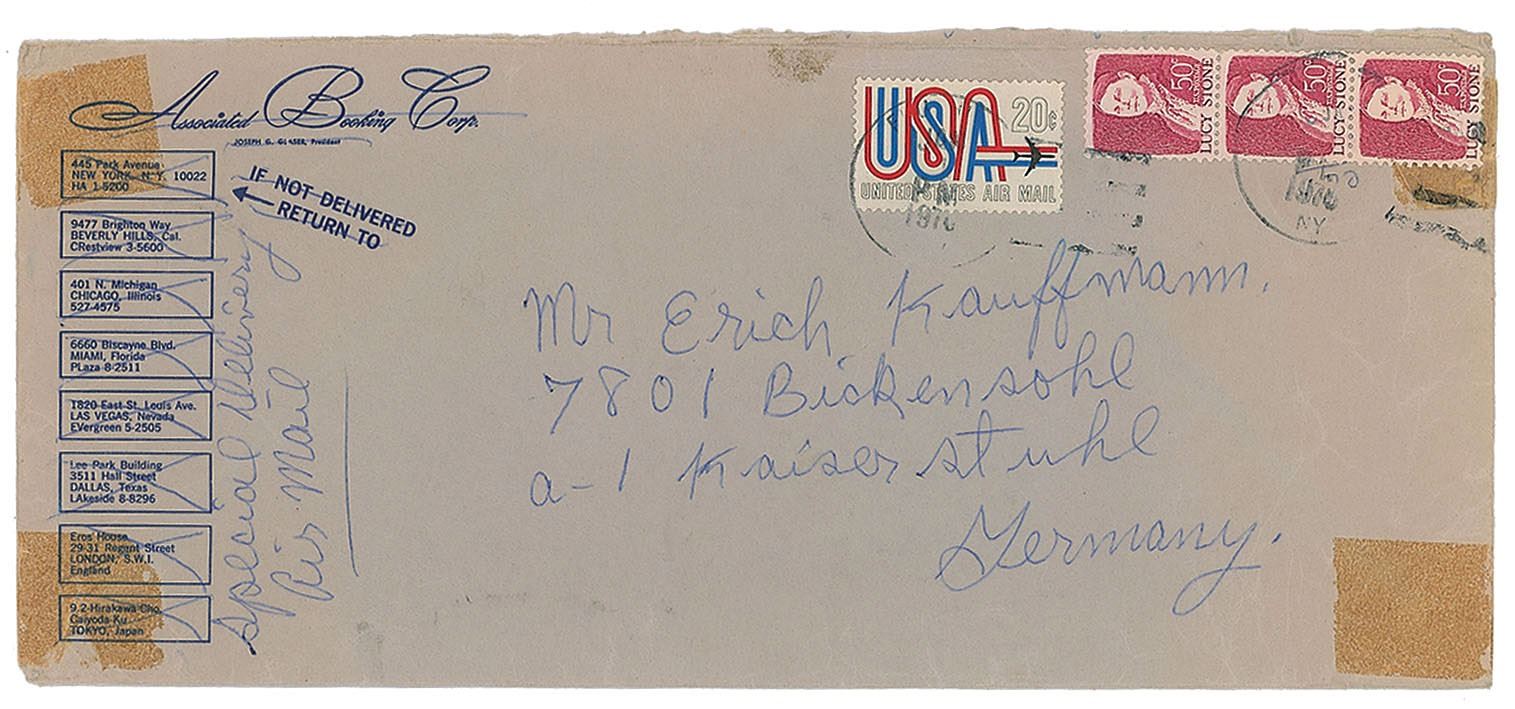 Associated Booking Corp.
JOSEPH G. GLASER, President
445 Park Avenue
NEW YORK, N.Y. 10022
HA 1-5200
IF NOT DELIVERED
RETURN TO
9477 Brighton Way
BEVERLY HILLS, Cal.
CRestview 3-5600
401 N. Michigan
CHICAGO, Illinois
527-4575
6660 Biscayne Blvd.
MIAMI, Florida
PLaza 8-2511
1820 East St. Louis Ave.
LAS VEGAS, Nevada
EVergreen 5-2505
Lee Park Building
3511 Hall Street
DALLAS, Texas
LAkeside 8-8296
Eros House
29-31 Regent Street
LONDON, S.W.I.
England
9,2-Hirakawa Cho,
Caiyoda Ku
TOKYO, Japan
Special Delivery
Air Mail
USA 20c
UNITED STATES AIR MAIL
PM
1970
50c
LUCY STONE
50c
LUCY STONE
50c
LUCY STONE
1970
NY
Mr Erich Kauffmann.
7801 Bickensohl
a-1 Kaiserstuhl
Germany.